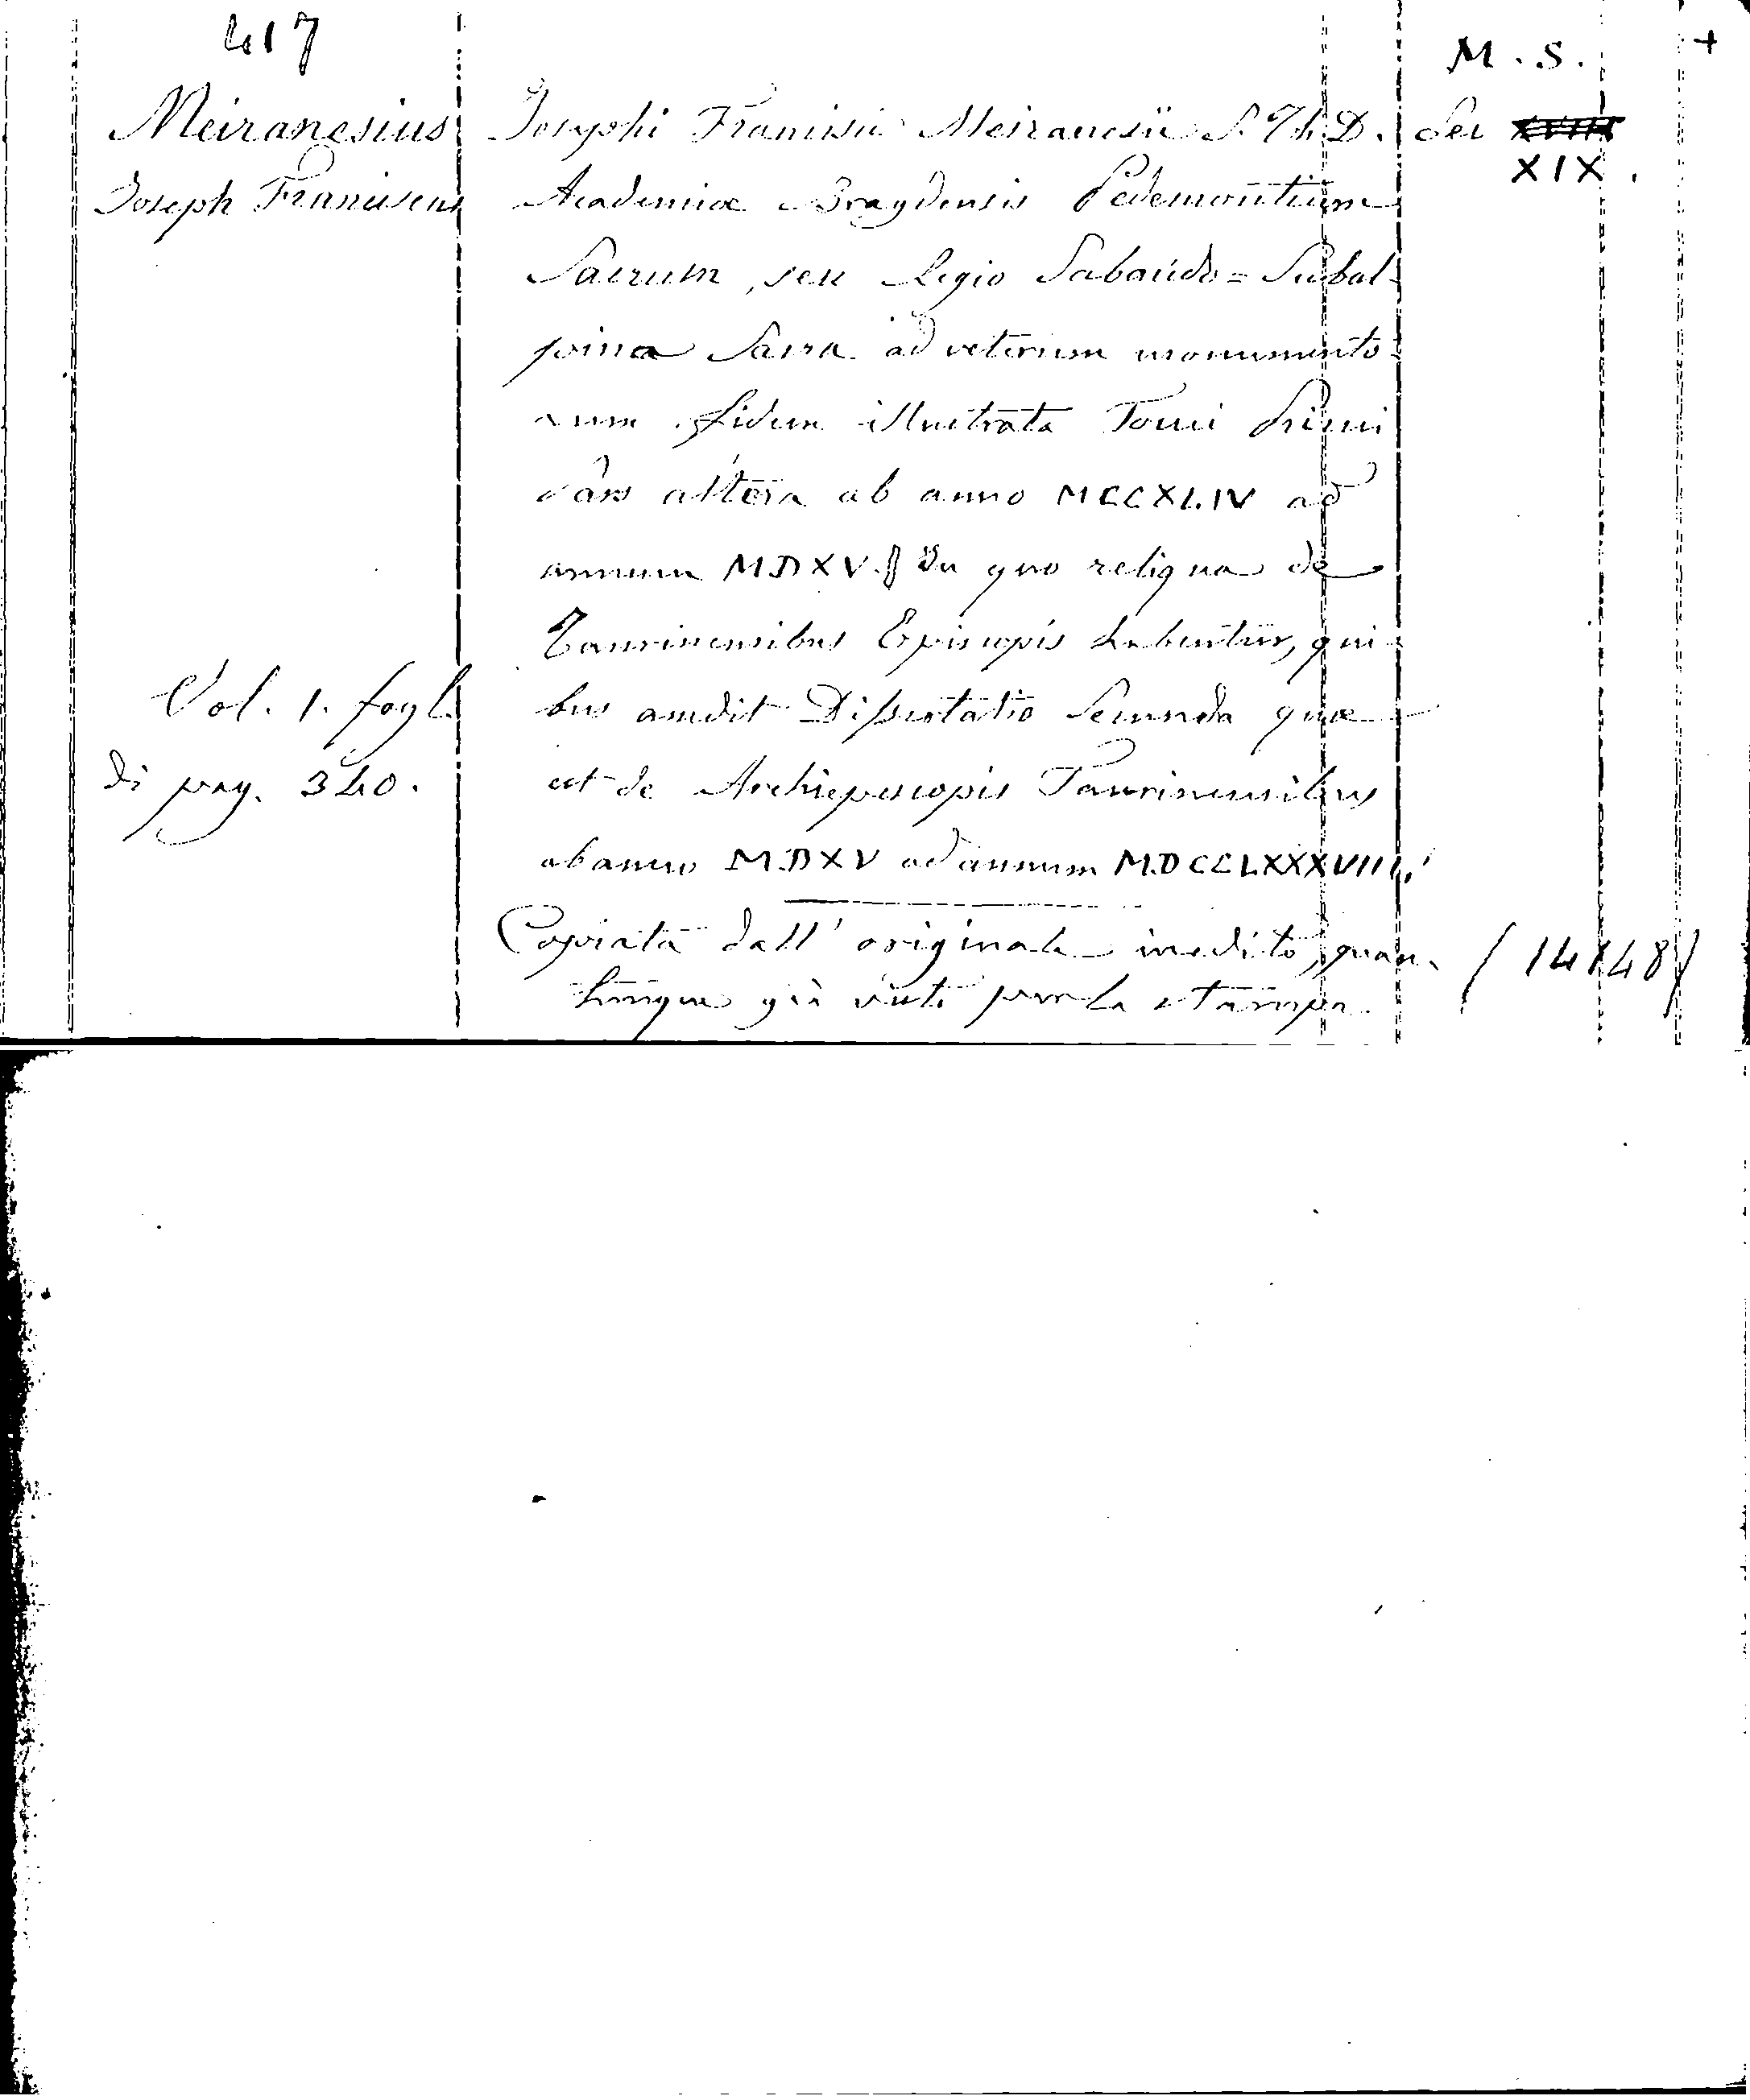 417
M. S. +
Meiranesius
Joseph Franciscus
Josephi Francisci Meiranesii S. Th. D.
Academiæ Bragdensis Pedemontium
Sacrum, seu Regio Sabaudo=Subal-
pina Sacra ad veterum monumento-
rum fidem illustrata Tomi Primi
Pars altera ab anno MCCXLIV ad
annum MDXV. In quo reliqua de
Taurinensibus Episcopis habentur, qui-
bus accedit Dissertatio Secunda quæ
est de Archiepiscopis Taurinensibus
ab anno MDXV ad annum MDCCLXXXVIII.
Copiata dall' originale inedito, quan-
tunque già visto per la stampa.
Vol. 1. fogl.
di pag. 340.
Sec XVIII
XIX.
(14148)